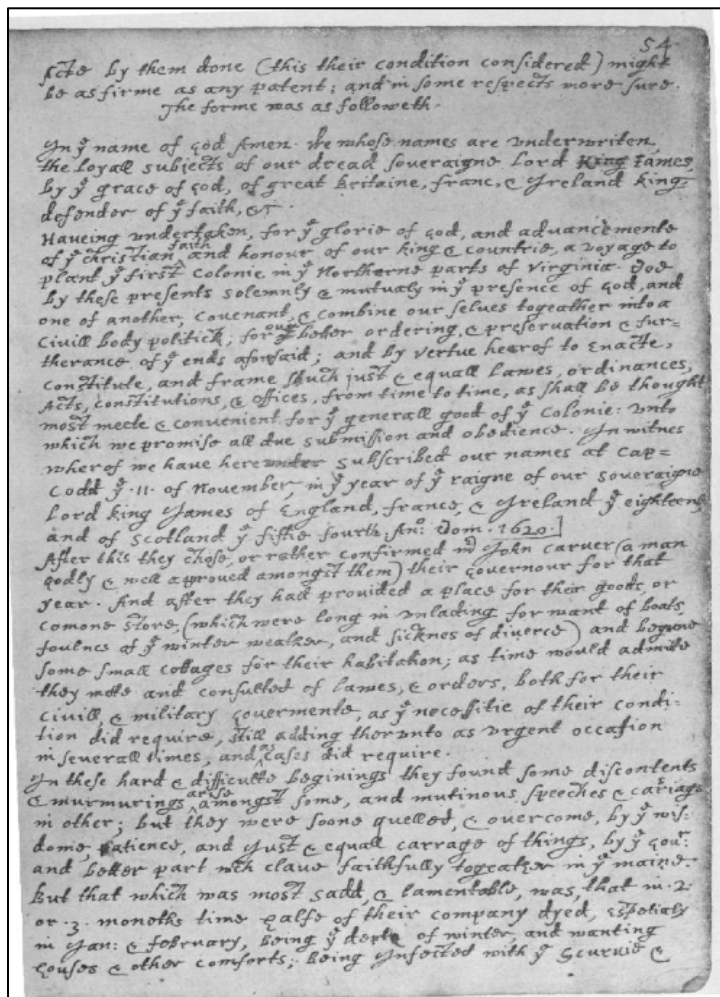 54.
Acte by them done (this their condition considered) might
be as firme as any patent; and in some respects more sure.
The forme was as followeth.
In yͤ name of God Amen. We whose names are underwriten,
the loyall subjects of our dread soveraigne Lord King James,
by yͤ grace of God, of great Britaine, franc, & Ireland king,
defender of yͤ faith, &c
Haveing undertaken, for yͤ glorie of God, and advancemente
of yͤ christian faith and honour of our king & countrie, a voyage to
plant yͤ first colonie in yͤ Northerne parts of Virginia. Doe
by these presents solemnly & mutualy in yͤ presence of God, and
one of another, covenant, & combine our selves togeather into a
Civill body politick; for our better ordering, & preservation & fur=
therance of yͤ ends aforesaid; and by vertue hearof to Enacte,
constitute, and frame shuch just & equall Lawes, ordinances,
Acts, constitutions, & offices, from time to time, as shall be thought
most meete & convenient for yͤ generall good of yͤ colonie: unto
which we promise all due submission and obedience. In witnes
wherof we have hereunder subscribed our names at Cap=
Codd yͤ .11. of November, in yͤ year of yͤ raigne of our soveraigne
Lord king James of England, france, & Ireland yͤ eighteenth
and of Scotland yͤ fiftie fourth. Anº: Dom. 1620.]
After this they chose, or rather confirmed mʳ John Carver (a man
godly & well approved amongst them) their Governour for that
year. And after they had provided a place for their goods, or
comone store, (which were long in unlading for want of boats,
foulnes of yͤ winter weather, and sicknes of diverce) and begune
some small cottages for their habitation; as time would admitte
they mette and consulted of lawes, & orders, both for their
civill, & military Govermente, as yͤ necessitie of their condi=
tion did require, still adding therunto as urgent occasion
in severall times, and as cases did require.
In these hard & difficulte beginings they found some discontents
& murmurings arise amongst some, and mutinous speeches & cariags
in other; but they were soone quelled, & overcome, by yͤ wis=
dome, patience, and just & equall carrage of things, by yͤ Govʳ:
and better part wch clave faithfully togeather in yͤ maine.
But that which was most sadd, & lamentable, was, that in .2.
or .3. moneths time halfe of their company dyed, espetialy
in Jan: & february, being yͤ depth of winter, and wanting
houses & other comforts; being Infected with yͤ Scurvie &